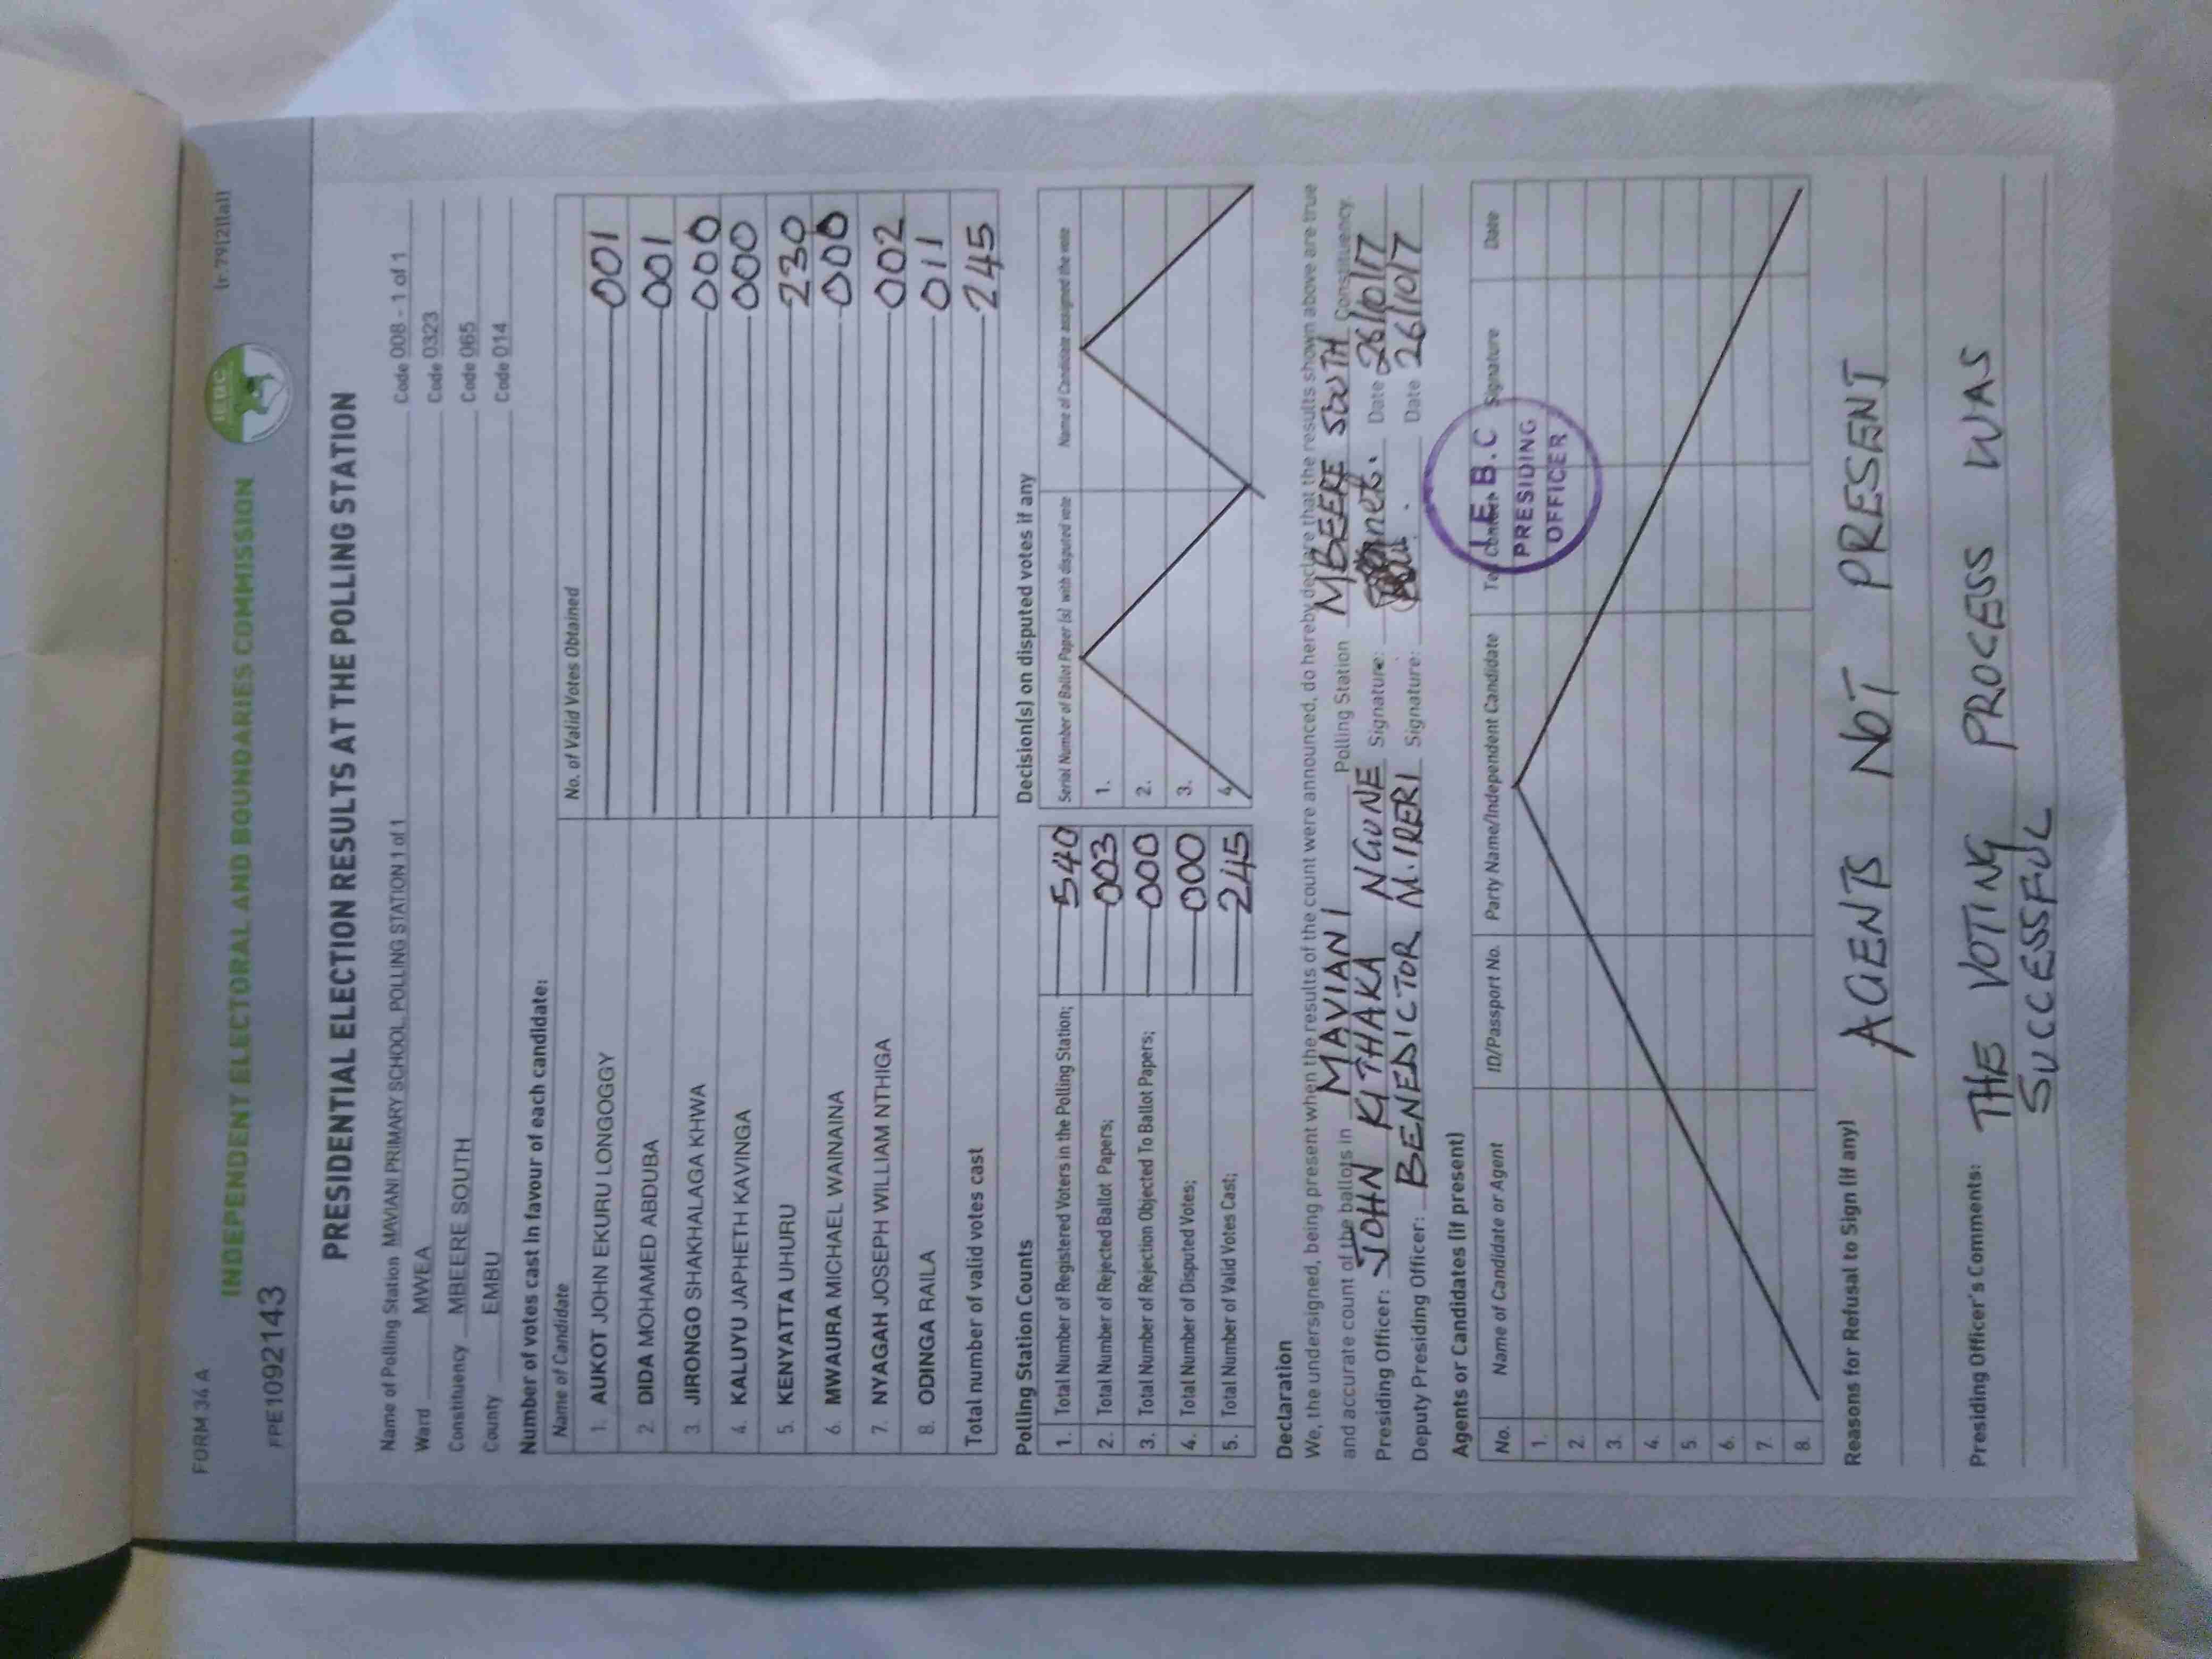 FORM 34 A
(r 79(2)(a))
INDEPENDENT ELECTORAL AND BOUNDARIES COMMISSION
IEBC
FPE1092143
PRESIDENTIAL ELECTION RESULTS AT THE POLLING STATION
Name of Polling Station MAVIANI PRIMARY SCHOOL, POLLING STATION 1 of 1 Code 008 - 1 of 1
Ward MWEA Code 0323
Constituency MBEERE SOUTH Code 065
County EMBU Code 014
Number of votes cast in favour of each candidate:
Name of Candidate No. of Valid Votes Obtained
1. AUKOT JOHN EKURU LONGOGGY 001
2. DIDA MOHAMED ABDUBA 001
3. JIRONGO SHAKHALAGA KHWA 000
4. KALUYU JAPHETH KAVINGA 000
5. KENYATTA UHURU 230
6. MWAURA MICHAEL WAINAINA 000
7. NYAGAH JOSEPH WILLIAM NTHIGA 002
8. ODINGA RAILA 011
Total number of valid votes cast 245
Polling Station Counts
1. Total Number of Registered Voters in the Polling Station; 540
2. Total Number of Rejected Ballot Papers; 003
3. Total Number of Rejection Objected To Ballot Papers; 000
4. Total Number of Disputed Votes; 000
5. Total Number of Valid Votes Cast; 245
Decision(s) on disputed votes if any
Serial Number of Ballot Paper (s) with disputed vote Name of Candidate assigned the vote
1.
2.
3.
4.
Declaration
We, the undersigned, being present when the results of the count were announced, do hereby declare that the results shown above are true
and accurate count of the ballots in MAVIANI Polling Station MBEERE SOUTH Constituency.
Presiding Officer: JOHN KITHAKA NGUNE Signature: Date 26/10/17
Deputy Presiding Officer: BENEDICTOR M. IRERI Signature: Date 26/10/7
Agents or Candidates (if present)
No. Name of Candidate or Agent ID/Passport No. Party Name/Independent Candidate Tel Contact Signature Date
I.E.B.C
PRESIDING
OFFICER
1.
2.
3.
4.
5.
6.
7.
8.
Reasons for Refusal to Sign (if any)
AGENTS NOT PRESENT
Presiding Officer's Comments: THE VOTING PROCESS WAS
SUCCESSFUL